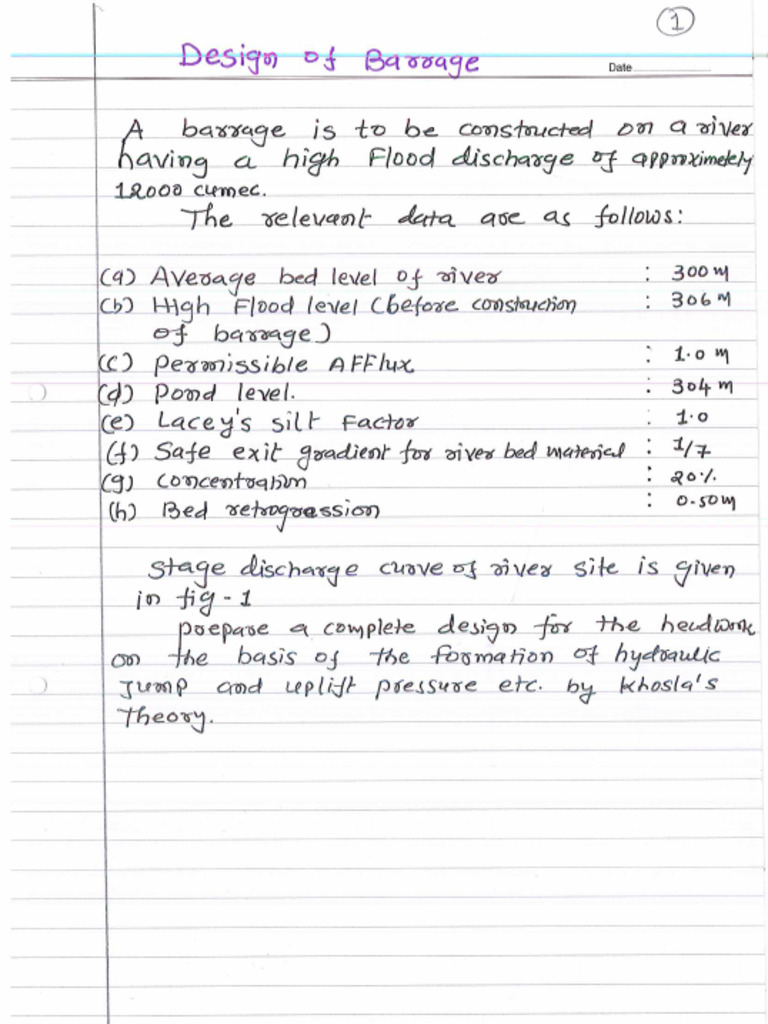 1
Design of Barrage
Date
A barrage is to be constructed on a river
having a high Flood discharge of approximetely
12000 cumec.
The relevant data are as follows:
(a) Average bed level of river : 300 m
(b) High Flood level (before construction : 306 m
of barrage)
(c) Permissible AFFlux : 1.0 m
(d) Pond level. : 304 m
(e) Lacey's silt Factor : 1.0
(f) Safe exit gradient for river bed material : 1/7
(g) Concentration : 20%.
(h) Bed retrogression : 0.50m
Stage discharge curve of river site is given
in fig - 1
Prepare a complete design for the headwork
on the basis of the formation of hydraulic
Jump and uplift pressure etc. by Khosla's
Theory.